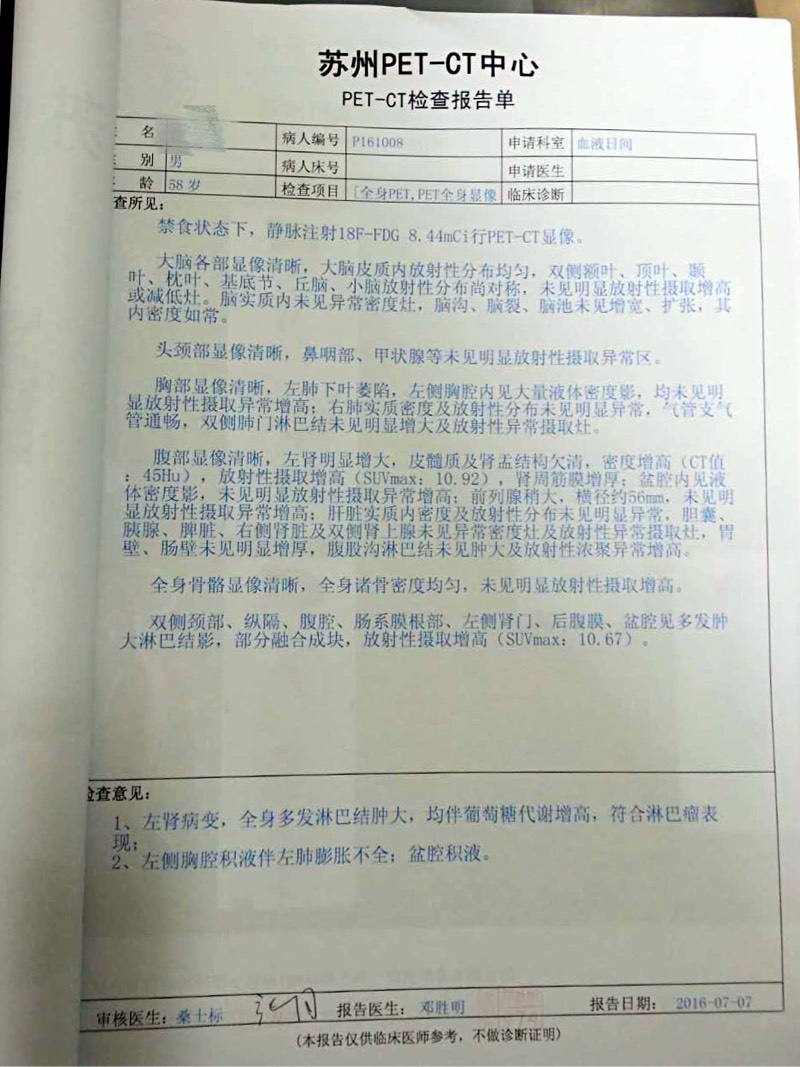 苏州PET-CT中心
PET-CT检查报告单
名 病人编号 P161008 申请科室 血液日间
别 男 病人床号 申请医生
龄 58 岁 检查项目 [全身PET,PET全身显像 临床诊断
查所见：
禁食状态下，静脉注射18F-FDG 8.44mCi行PET-CT显像。
大脑各部显像清晰，大脑皮质内放射性分布均匀，双侧额叶、顶叶、颞
叶、枕叶、基底节、丘脑、小脑放射性分布尚对称，未见明显放射性摄取增高
或减低灶。脑实质内未见异常密度灶，脑沟、脑裂、脑池未见增宽、扩张，其
内密度如常。
头颈部显像清晰，鼻咽部、甲状腺等未见明显放射性摄取异常区。
胸部显像清晰，左肺下叶萎陷，左侧胸腔内见大量液体密度影，均未见明
显放射性摄取异常增高；右肺实质密度及放射性分布未见明显异常，气管支气
管通畅，双侧肺门淋巴结未见明显增大及放射性异常摄取灶。
腹部显像清晰，左肾明显增大，皮髓质及肾盂结构欠清，密度增高（CT值
：45Hu），放射性摄取增高（SUVmax：10.92），肾周筋膜增厚；盆腔内见液
体密度影，未见明显放射性摄取异常增高；前列腺稍大，横径约56mm，未见明
显放射性摄取异常增高；肝脏实质内密度及放射性分布未见明显异常，胆囊、
胰腺、脾脏、右侧肾脏及双侧肾上腺未见异常密度灶及放射性异常摄取灶，胃
壁、肠壁未见明显增厚，腹股沟淋巴结未见肿大及放射性浓聚异常增高。
全身骨骼显像清晰，全身诸骨密度均匀，未见明显放射性摄取增高。
双侧颈部、纵隔、腹腔、肠系膜根部、左侧肾门、后腹膜、盆腔见多发肿
大淋巴结影，部分融合成块，放射性摄取增高（SUVmax：10.67）。
检查意见：
1、左肾病变，全身多发淋巴结肿大，均伴葡萄糖代谢增高，符合淋巴瘤表
现；
2、左侧胸腔积液伴左肺膨胀不全；盆腔积液。
审核医生：桑士标 报告医生：邓胜明 报告日期： 2016-07-07
(本报告仅供临床医师参考，不做诊断证明)